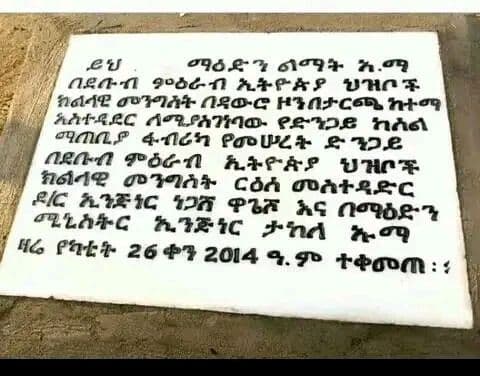 ይህ ማዕድን ልማት አ.ማ
በደቡብ ምዕራብ ኢትዮጵያ ህዝቦች
ክልላዊ መንግስት በዳውሮ ዞን በታርጫ ከተማ
አስተዳደር ለሚያስገነባው የድንጋይ ከሰል
ማጠቢያ ፋብሪካ የመሠረት ድንጋይ
በደቡብ ምዕራብ ኢትዮጵያ ህዝቦች
ክልላዊ መንግስት ርዕሰ መስተዳድር
ዶ/ር ኢንጅነር ነጋሽ ዋጌሾ እና በማዕድን
ሚኒስትር ኢንጅነር ታከለ ኡማ
ዛሬ የካቲት 26 ቀን 2014 ዓ.ም ተቀመጠ፡፡